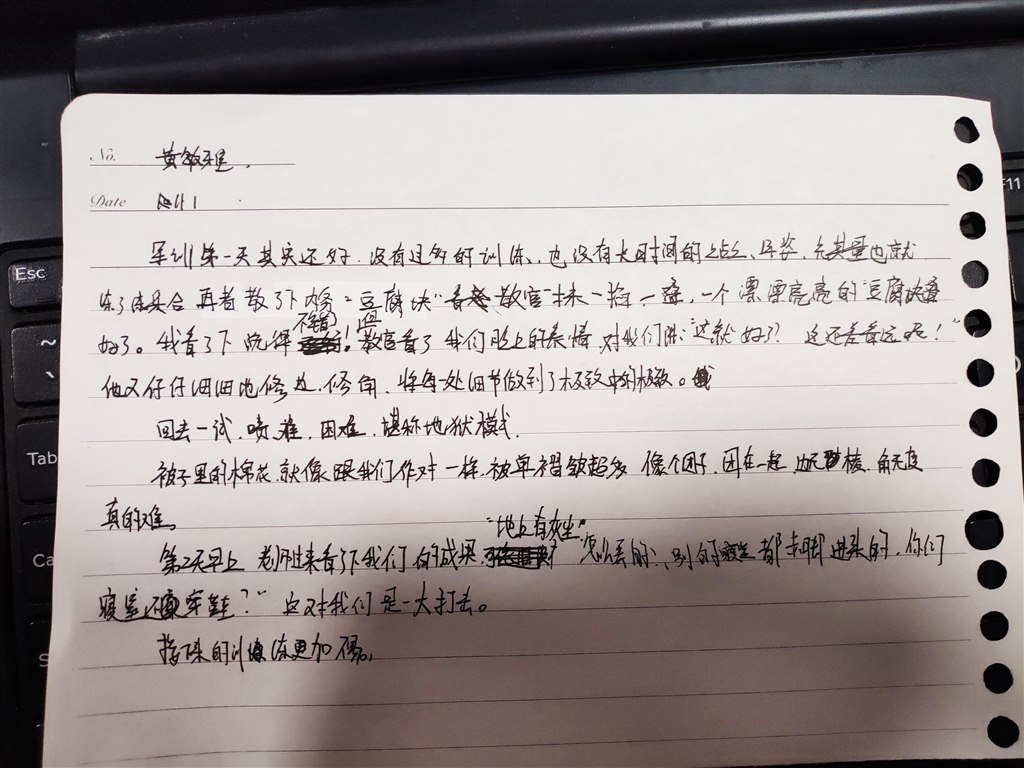 No. 黄敏雅.
Date 1
军训第一天其实还好,没有过多的训练,也没有长时间的站立、军姿,尤其量也就
练了集合 再者教了下内务:豆腐块 教官一抹一掐一叠,一个漂漂亮亮的"豆腐块叠
好了。我看了下觉得不错! 教官看了我们脸上的表情,对我们讲:"这就好了? 这还差着远呢!"
他又仔仔细细地修边,修角,将每一处细节做到了极致中的极致。
回去一试,喷难,困难,堪称地狱模式.
被子里的棉花,就像跟我们作对一样,被单褶皱超多 像个团子,团在一起 边无棱,角无度
真的难。
第2天早上 老师过来看了下我们的成果,"地上有灰尘。""怎么丢的;别的寝室都赤脚进来的,你们
寝室还穿鞋?" 这对我们是一大打击。
接下来的训练更加
Esc
Tab
F11